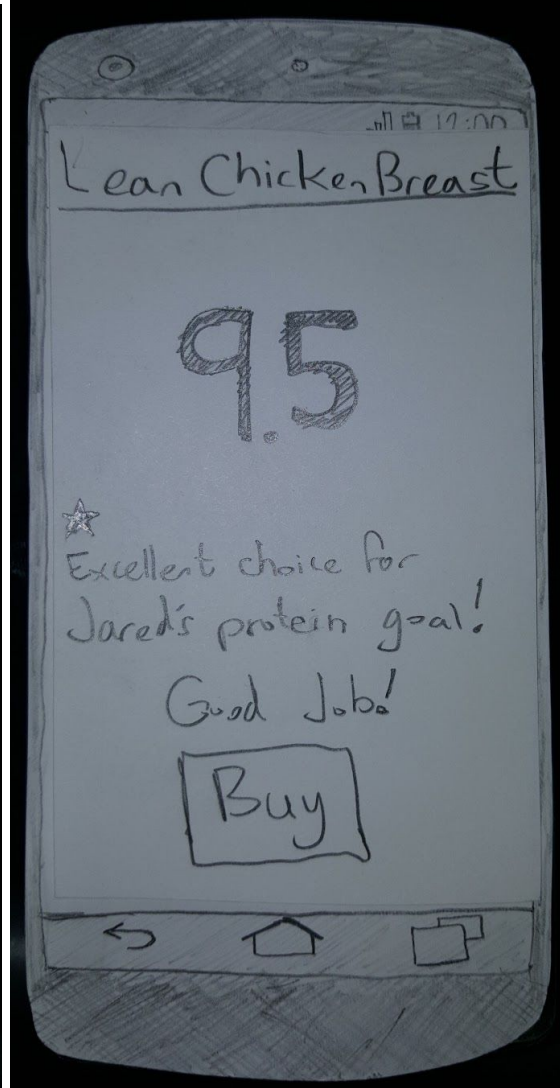 12:00
Lean Chicken Breast
9.5
Excellent choice for
Jared's protein goal!
Good Job!
Buy